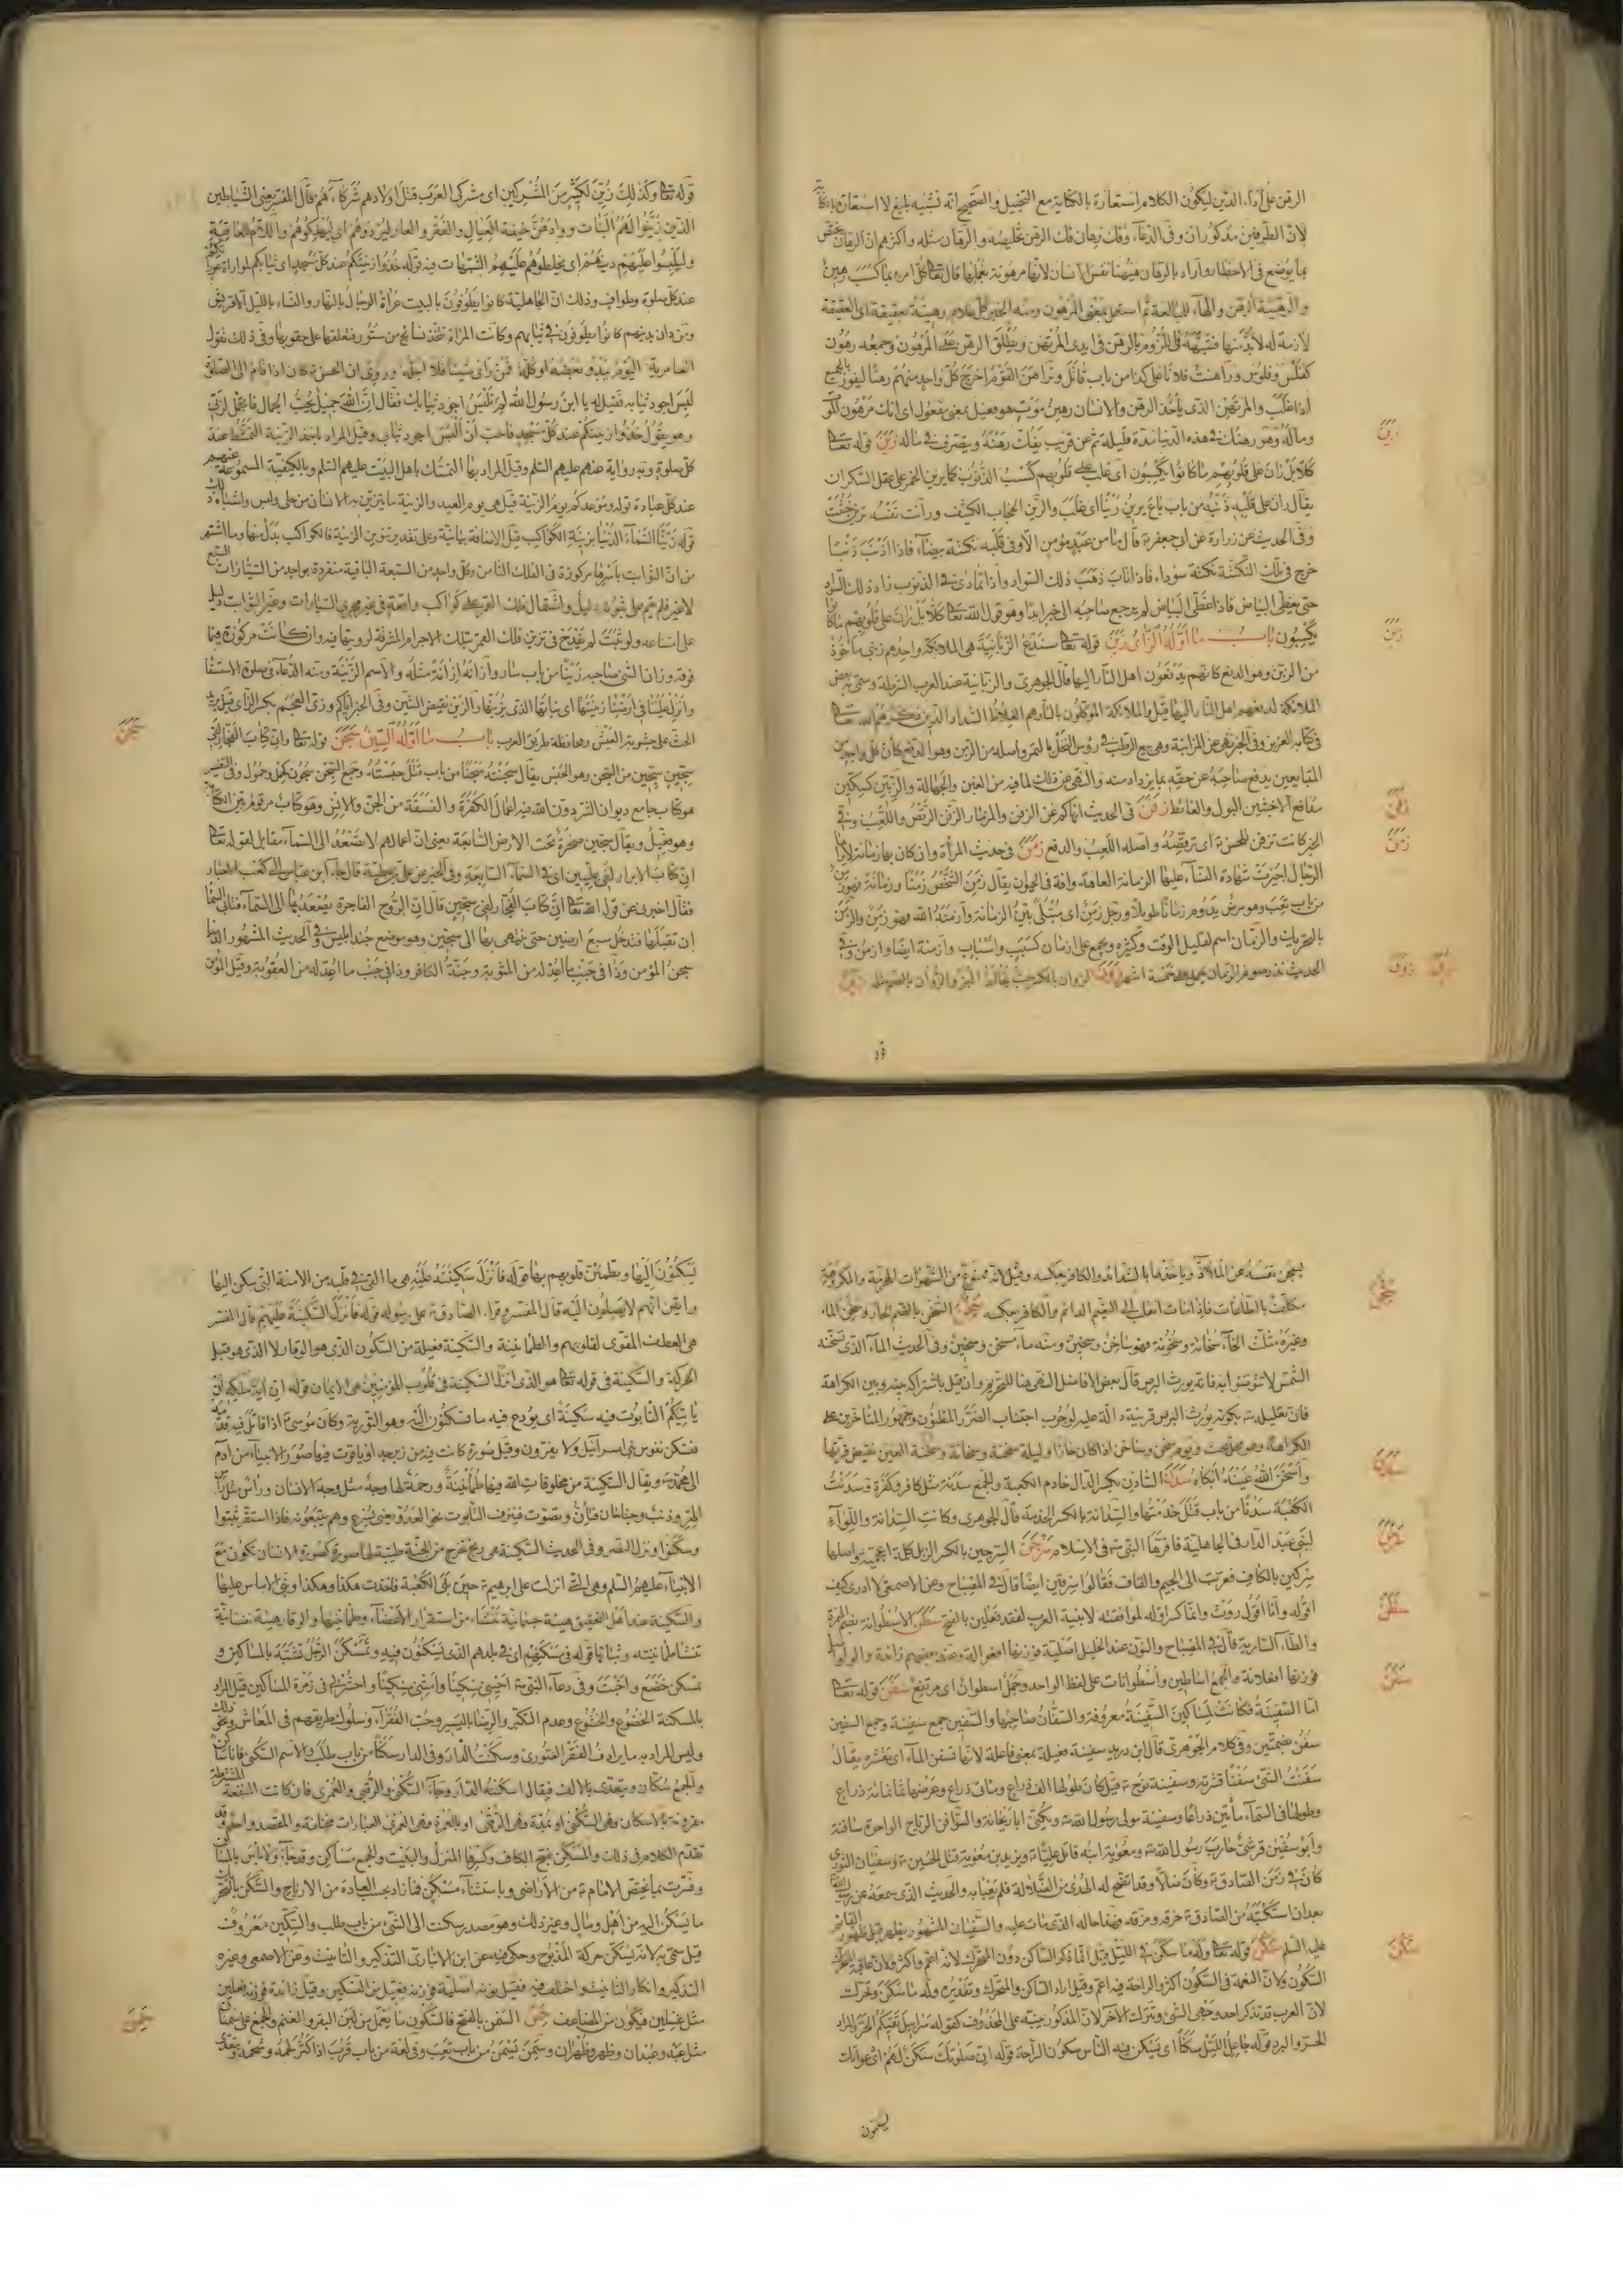 الرهن على أداء الدين ليكون الكلام استعارة بالكناية مع التخييل والصحيح انه تشبيه بليغ لا استعارة
لان الطرفين مذكوران وفى الدعاء وفك رهانى فك الرهن تخليصه والرهان مثله وأكثرهم ان الرهان يختص
بما يوضع فى الاخطار وأراد بالرهان هيهنا نفس الانسان لانها مرهونة بعملها قال تعا كل امرء بما كسب رهين
والرهينة الرهن والهاء للمبالغة ثم استعمل بمعنى المرهون ومنه الخبر كل غلام رهينة بعقيقة اى العقيقة
لازمة له لابد منها فشبهه فى اللزوم بالرهن فى ايدى المرتهن ويطلق الرهن على المرهون وجمعه رهون
كفلس وفلوس وراهنت فلانا على كذا من باب قاتل وتراهن القوم اخرج كل واحد منهم رهنا ليفوز بالجميع
اذا غلب والمرتهن الذى يأخذ الرهن والانسان رهين موت هو فعيل بمعنى مفعول اى انك مرهون
وماله وهو رهنك فى هذه الدنيا مدة قليلة ثم عن قريب يفك رهنه ويتصرف فى ماله رين قوله تعا
كلا بل ران على قلوبهم ما كانوا يكسبون اى غلب على قلوبهم كسب الذنوب كما يرين الخمر على عقل السكران
يقال ران على قلبه ذنبه من باب باع يرين رينا اى غلب والرين الحجاب الكثيف ورانت نفسه ترين خبثت
وفى الحديث عن زرارة عن ابى جعفر ع قال ما من عبد مؤمن الا وفى قلبه نكتة بيضاء فاذا اذنب ذنبا
خرج فى تلك النكتة نكتة سوداء فاذا تاب ذهب ذلك السواد واذا تمادى فى الذنوب زاد ذلك السواد
حتى يغطى البياض فاذا غطى البياض لم يرجع صاحبه الى خير ابدا وهو قول الله تعا كلا بل ران على قلوبهم ما كانوا
يكسبون باب ما اوله الزاى زبن قوله تعا سندع الزبانية هى الملائكة واحدهم زبنى مأخوذ
من الزبن وهو الدفع كانهم يدفعون اهل النار اليها قال الجوهرى والزبانية عند العرب الشرطة وسمى به بعض
الملائكة لدفعهم اهل النار اليها قيل والملائكة الموكلون بالنار هم الغلاظ الشداد الذين ذكرهم الله تعا
فى كتابه العزيز وفى الخبر نهى عن المزابنة وهى بيع الرطب فى رؤس النخل بالتمر واصله من الزبن وهو الدفع كأن كل واحد من
المتبايعين يدفع صاحبه عن حقه بما يزداد منه والنهى عن ذلك لما فيه من الغبن والجهالة والزبين كسكين
مدافع الاخبثين البول والغائط زفن فى الحديث انهاكم عن الزفن والمزمار الزفن الرقص واللعب وفى
الخبر كانت تزفن للحسن ع اى ترقصه واصله اللعب والدفع زمن فى حديث المرأة وان كان بها زمانة لا يراها
الرجال اجيزت شهادة النساء عليها الزمانة العاهة وافة فى الحيوان يقال زمن الشخص زمنا وزمانة فهو زمن
من باب تعب وهو مرض يدوم زمانا طويلا ورجل زمن اى مبتلى بين الزمانة وأزمنه الله فهو زمن والزمن
بالتحريك والزمان اسم لقليل الوقت وكثيره ويجمع على ازمان كسبب واسباب وازمنة ايضا وازمن وفى
الحديث نذر صوم الزمان يحمل على خمسة اشهر زون الزوان بالكسر حب يخالط البر والزوان بالضم مثله زين
رين
زبن
زفن
زمن
زون
زين
قو
قوله تعا وكذلك زين لكثير من المشركين اى مشركى العرب قتل اولادهم شركاءهم قال المفسر يعنى الشياطين
الذين زينوا لهم البنات ووادهن خيفة العيال والفقر والعار ليردوهم اى ليهلكوهم واللام للعاقبة
وليلبسوا عليهم دينهم اى يخلطوهم عليهم الشبهات فيه قوله خذوا زينتكم عند كل مسجد اى ثيابكم لموارات عورتكم
عند كل صلوة وطواف وذلك ان الجاهلية كانوا يطوفون بالبيت عراة الرجال بالنهار والنساء بالليل الا قريش
ومن دان بدينهم كانوا يطوفون فى ثيابهم وكانت المرأة تتخذ نسائج من سيور فتعلقها على حقويها وفى ذلك تقول
العامرية اليوم يبدو بعضه او كله فمن رأى شيئا فلا احله وروى ان الحسن ع كان اذا قام الى الصلوة
لبس اجود ثيابه فقيل له يا ابن رسول الله لم تلبس اجود ثيابك فقال ان الله جميل يحب الجمال فاتجمل لربى
وهو يقول خذوا زينتكم عند كل مسجد فاحب ان ألبس اجود ثيابى وقيل المراد باخذ الزينة التمشط عند
كل صلوة وبه رواية عنهم عليهم السلم وقيل المراد بها التمسك باهل البيت عليهم السلم وبالكيفية المسموعة عنهم
عند كل عبادة قوله وموعدكم يوم الزينة قيل هى يوم العيد والزينة ما يتزين به الانسان من حلى ولبس واشباه ذلك
قوله زينا السماء الدنيا بزينة الكواكب قيل الاضافة بيانية وعلى تقدير تنوين الزينة فالكواكب بدل منها وما اشتهر
من ان الثوابت باسرها مركوزة فى الفلك الثامن وكل واحد من السبعة الباقية منفردة بواحد من السيارات السبع
لا غير فلم يقم على ثبوته دليل واشتمال فلك القمر على كواكب واقعة فى غير مجرى السيارات وغير الثوابت دليل
على امتناعه ولو ثبت لم يقدح فى تزين فلك القمر بتلك الاجرام المشرفة لرويتها فيه وان كانت مركوزة فيما
فوقه وزان الشئ صاحبه زينا من باب سار وأزانه إزانة مثله والاسم الزينة ومنه الدعاء فى صلوة الاستسقاء
وانزل علينا فى ارضنا زينتها اى نباتها الذى يزينها والزين نقيض الشين وفى الخبر اياكم وزى العجم بكسر الزاى قيل يريد
الحث على خشونة العيش ومحافظة طريق العرب باب ما اوله السين سجن قوله تعا وان كتاب الفجار لفى
سجين سجين من السجن وهو الحبس يقال سجنته سجنا من باب قتل حبسته وجمع السجن سجون كحمل وحمول وفى التفسير
هو كتاب جامع ديوان الشر دون الله فيه اعمال الكفرة والفسقة من الجن والانس وهو كتاب مرقوم بين الكتابة
وهو فعيل ويقال سجين صخرة تحت الارض السابعة يعنى ان اعمالهم لا تصعد الى السماء مقابل لقوله تعا
ان كتاب الابرار لفى عليين اى فى السماء السابعة
فقال اخبرنى عن قول الله تعا ان كتاب الفجار لفى سجين قال ان الروح الفاجرة يصعد بها الى السماء فتابى السماء
ان تقبلها فتدخل سبع ارضين حتى ينتهى بها الى سجين وهو موضع جند ابليس وفى الحديث المشهور الدنيا
سجن المؤمن وذا فى جنب ما اعد له من المثوبة وجنة الكافر وذا فى جنب ما اعد له من العقوبة وقيل المؤمن
سجن
يسجن نفسه عن الملاذ وياخذها بالشدائد والكافر بعكسه وقيل لانه ممنوع من الشهوات المحرمة والمكروهة
مكلف بالطاعات فاذا مات انقلب الى النعيم الدائم والكافر بعكسه سخن السخن بالضم الحار وسخن الماء
وغيره مثلث الخاء سخانة وسخونة فهو ساخن وسخين ومنه ماء مسخن وسخين وفى الحديث الماء الذى تسخنه
الشمس لا تتوضوا به فانه يورث البرص قال بعض الافاضل النهى هنا للتحريم وان قيل باشتراكه بينه وبين الكراهة
فان تعليله ع بكونه يورث البرص قرينة دالة عليه لوجوب اجتناب الضرر المظنون وجمهور المتأخرين على
الكراهة وهو محل بحث ويوم سخن وساخن اذا كان حارا وليلة سخنة وسخانة وسخنة العين نقيض قرتها
وأسخن الله عينه أبكاه سدن السادن بكسر الدال خادم الكعبة والجمع سدنة مثل كافر وكفرة وسدنت
الكعبة سدنا من باب قتل خدمتها والسدانة بالكسر الخدمة قال الجوهرى وكانت السدانة واللواء
لبنى عبد الدار فى الجاهلية فاقرها النبى ص فى الاسلام سرجن السرجين بالكسر الزبل كلمة اعجمية واصلها
سركين بالكاف فعربت الى الجيم والقاف فقالوا سرقين ايضا قال فى المصباح وعن الاصمعى لا ادرى كيف
اقوله وانما اقول روث وانما كسر اوله لموافقته لابنية العرب لفقد فعلين بالفتح سطن الاسطوانة بضم الهمزة
والطاء السارية قال فى المصباح والنون عند الخليل اصلية فوزنها افعوالة وعند بعضهم زائدة والواو اصل
فوزنها افعلانة والجمع اساطين وأسطوانات على لفظ الواحد وجمل اسطوان اى مرتفع سفن قوله تعا
اما السفينة فكانت لمساكين السفينة معروفة والسفان صاحبها والسفين جمع سفينة وجمع السفين
سفن بضمتين وفى كلام الجوهرى قال ابن دريد سفينة فعيلة بمعنى فاعلة لانها تسفن الماء اى تقشره يقال
سفنت الشئ سفنا قشرته وسفينة نوح ع قيل كان طولها الف ذراع ومائى ذراع وعرضها ثمانمائة ذراع
وطولها فى السماء مأتين ذراعا وسفينة مولى رسول الله ص ويكنى ابا ريحانة والسوافن الرياح الواحدة سافنة
وابو سفين قرشى حارب رسول الله ص ومعوية ابنه قاتل عليا ع ويزيد بن معوية قتل الحسين ع وسفيان الثورى
كان فى زمن الصادق ع وكان ضالا وقد اتضح له الهدى من الضلالة فلم يعبأ به والحديث الذى سمعه
بعد ان استكتبه من الصادق ع خرقه ومزقه وهذا حاله الذى مات عليه والسفيان المشهور يظهر قبل ظهور القائم
عليه السلم سكن قوله تعا وله ما سكن فى الليل قيل انما ذكر الساكن دون المتحرك لانه اعم واكثر ولان عاقبة المتحرك
السكون ولان النعمة فى السكون اكثر والراحة فيه اعم وقيل اراد الساكن والمتحرك وتقديره وله ما سكن وتحرك
لان العرب قد تذكر احد وجهى الشئ وتترك الاخر لان المذكور ينبه على المحذوف كقوله سرابيل تقيكم الحر والمراد
الحر والبرد قوله جاعل الليل سكنا اى يسكن فيه الناس سكون الراحة قوله ان صلوتك سكن لهم اى دعواتك
سخن
سدن
سرجن
سطن
سفن
سكن
يسكنون
يسكنون إليها ويطمئن قلوبهم بها قوله فانزل سكينته عليه هى ما القى فى قلبه من الامنة التى يسكن اليها
وايقن انهم لا يصلون اليه قال المفسر وقرأ الصادق ع على رسوله قوله فانزل السكينة عليهم قال المفسر
هى اللطف المقوى لقلوبهم والطمانينة والسكينة فعيلة من السكون الذى هو الوقار لا الذى هو قبل
الحركة والسكينة فى قوله تعا هو الذى انزل السكينة فى قلوب المؤمنين هى الايمان قوله ان اية ملكه ان
يا تيكم التابوت فيه سكينة اى يودع فيه ما تسكنون اليه وهو التورية وكان موسى ع اذا قاتل قدمه
فتسكن نفوس بنى اسرائيل ولا يفرون وقيل صورة كانت فيه من زبرجد او ياقوت فيها صور الانبياء من ادم
الى محمد ص ويقال السكينة من مخلوقات الله فيها طمأنينة ورحمة لها وجه مثل وجه الانسان ورأس مثل رأس
الهر وذنب وجناحان فتأن وتصوت فيزف التابوت نحو العدو يعنى يسرع وهم يتبعونه فاذا استقر ثبتوا
وسكنوا ونزل النصر وفى الحديث السكينة هى ريح تخرج من الجنة طيبة لها صورة كصورة الانسان تكون مع
الانبياء عليهم السلم وهى التى انزلت على ابرهيم ع حين بنى الكعبة فاخذت هكذا وهكذا وبنى الاساس عليها
والسكينة عند اهل التحقيق هيئة جسمانية تنشاء من استقرار الاعضاء وطمانينها والوقار هيئة نفسانية
تنشا طمانينته وثباتها قوله فى مسكنهم اى فى بلدهم الذى يسكنون فيه وتمسكن الرجل تشبه بالمساكين و
تمسكن خضع واخبت وفى دعاء النبى ص احينى مسكينا وامتنى مسكينا واحشرنى فى زمرة المساكين قيل المراد
بالمسكنة الخضوع والخشوع وعدم التكبر والرضا باليسير وحب الفقراء وسلوك طريقهم فى المعاش ونحو ذلك
وليس المراد به ما يرادف الفقر الصورى وسكنت الدار وفى الدار سكنا من باب طلب والاسم السكنى فانا ساكن
والجمع سكان ويتعدى بالالف فيقال اسكنته الدار وجاء السكنى والرقبى والعمرى فان كانت المنفعة المشروطة
مقرونة بالاسكان فهى السكنى او بمدة فهى الرقبى او بالعمر فهى العمرى العبارات مختلفة والمقصد واحد وقد
تقدم الكلام فى ذلك والمسكن بفتح الكاف وكسرها المنزل والبيت والجمع مساكن وقد جاء ولا بأس بالمساكن
وفسرت بما يختص الامام ع من الاراضى وباستثناء مسكن فما زاد بحسب العادة من الارباح والسكن بالتحريك
ما يسكن اليه من أهل ومال وغير ذلك وهو مصدر سكنت الى الشئ من باب طلب والسكين معروف
قيل سمى به لانه يسكن حركة المذبوح وحكى فيه عن ابن الانبارى التذكير والتانيث وعن الاصمعى وغيره
التذكير وانكار التانيث واختلف فيه فقيل نونه اصلية فوزنه فعيل من التسكين وقيل زائدة فوزنه فعلين
مثل غسلين فيكون من المضاعف سمن السمن بالفتح فالسكون ما يعمل من لبن البقر والغنم والجمع على سمنان
مثل عبد وعبدان وظهر وظهران وسمن يسمن من باب تعب وفى لغة من باب قرب اذا كثر لحمه وشحمه ويتعدى
سمن